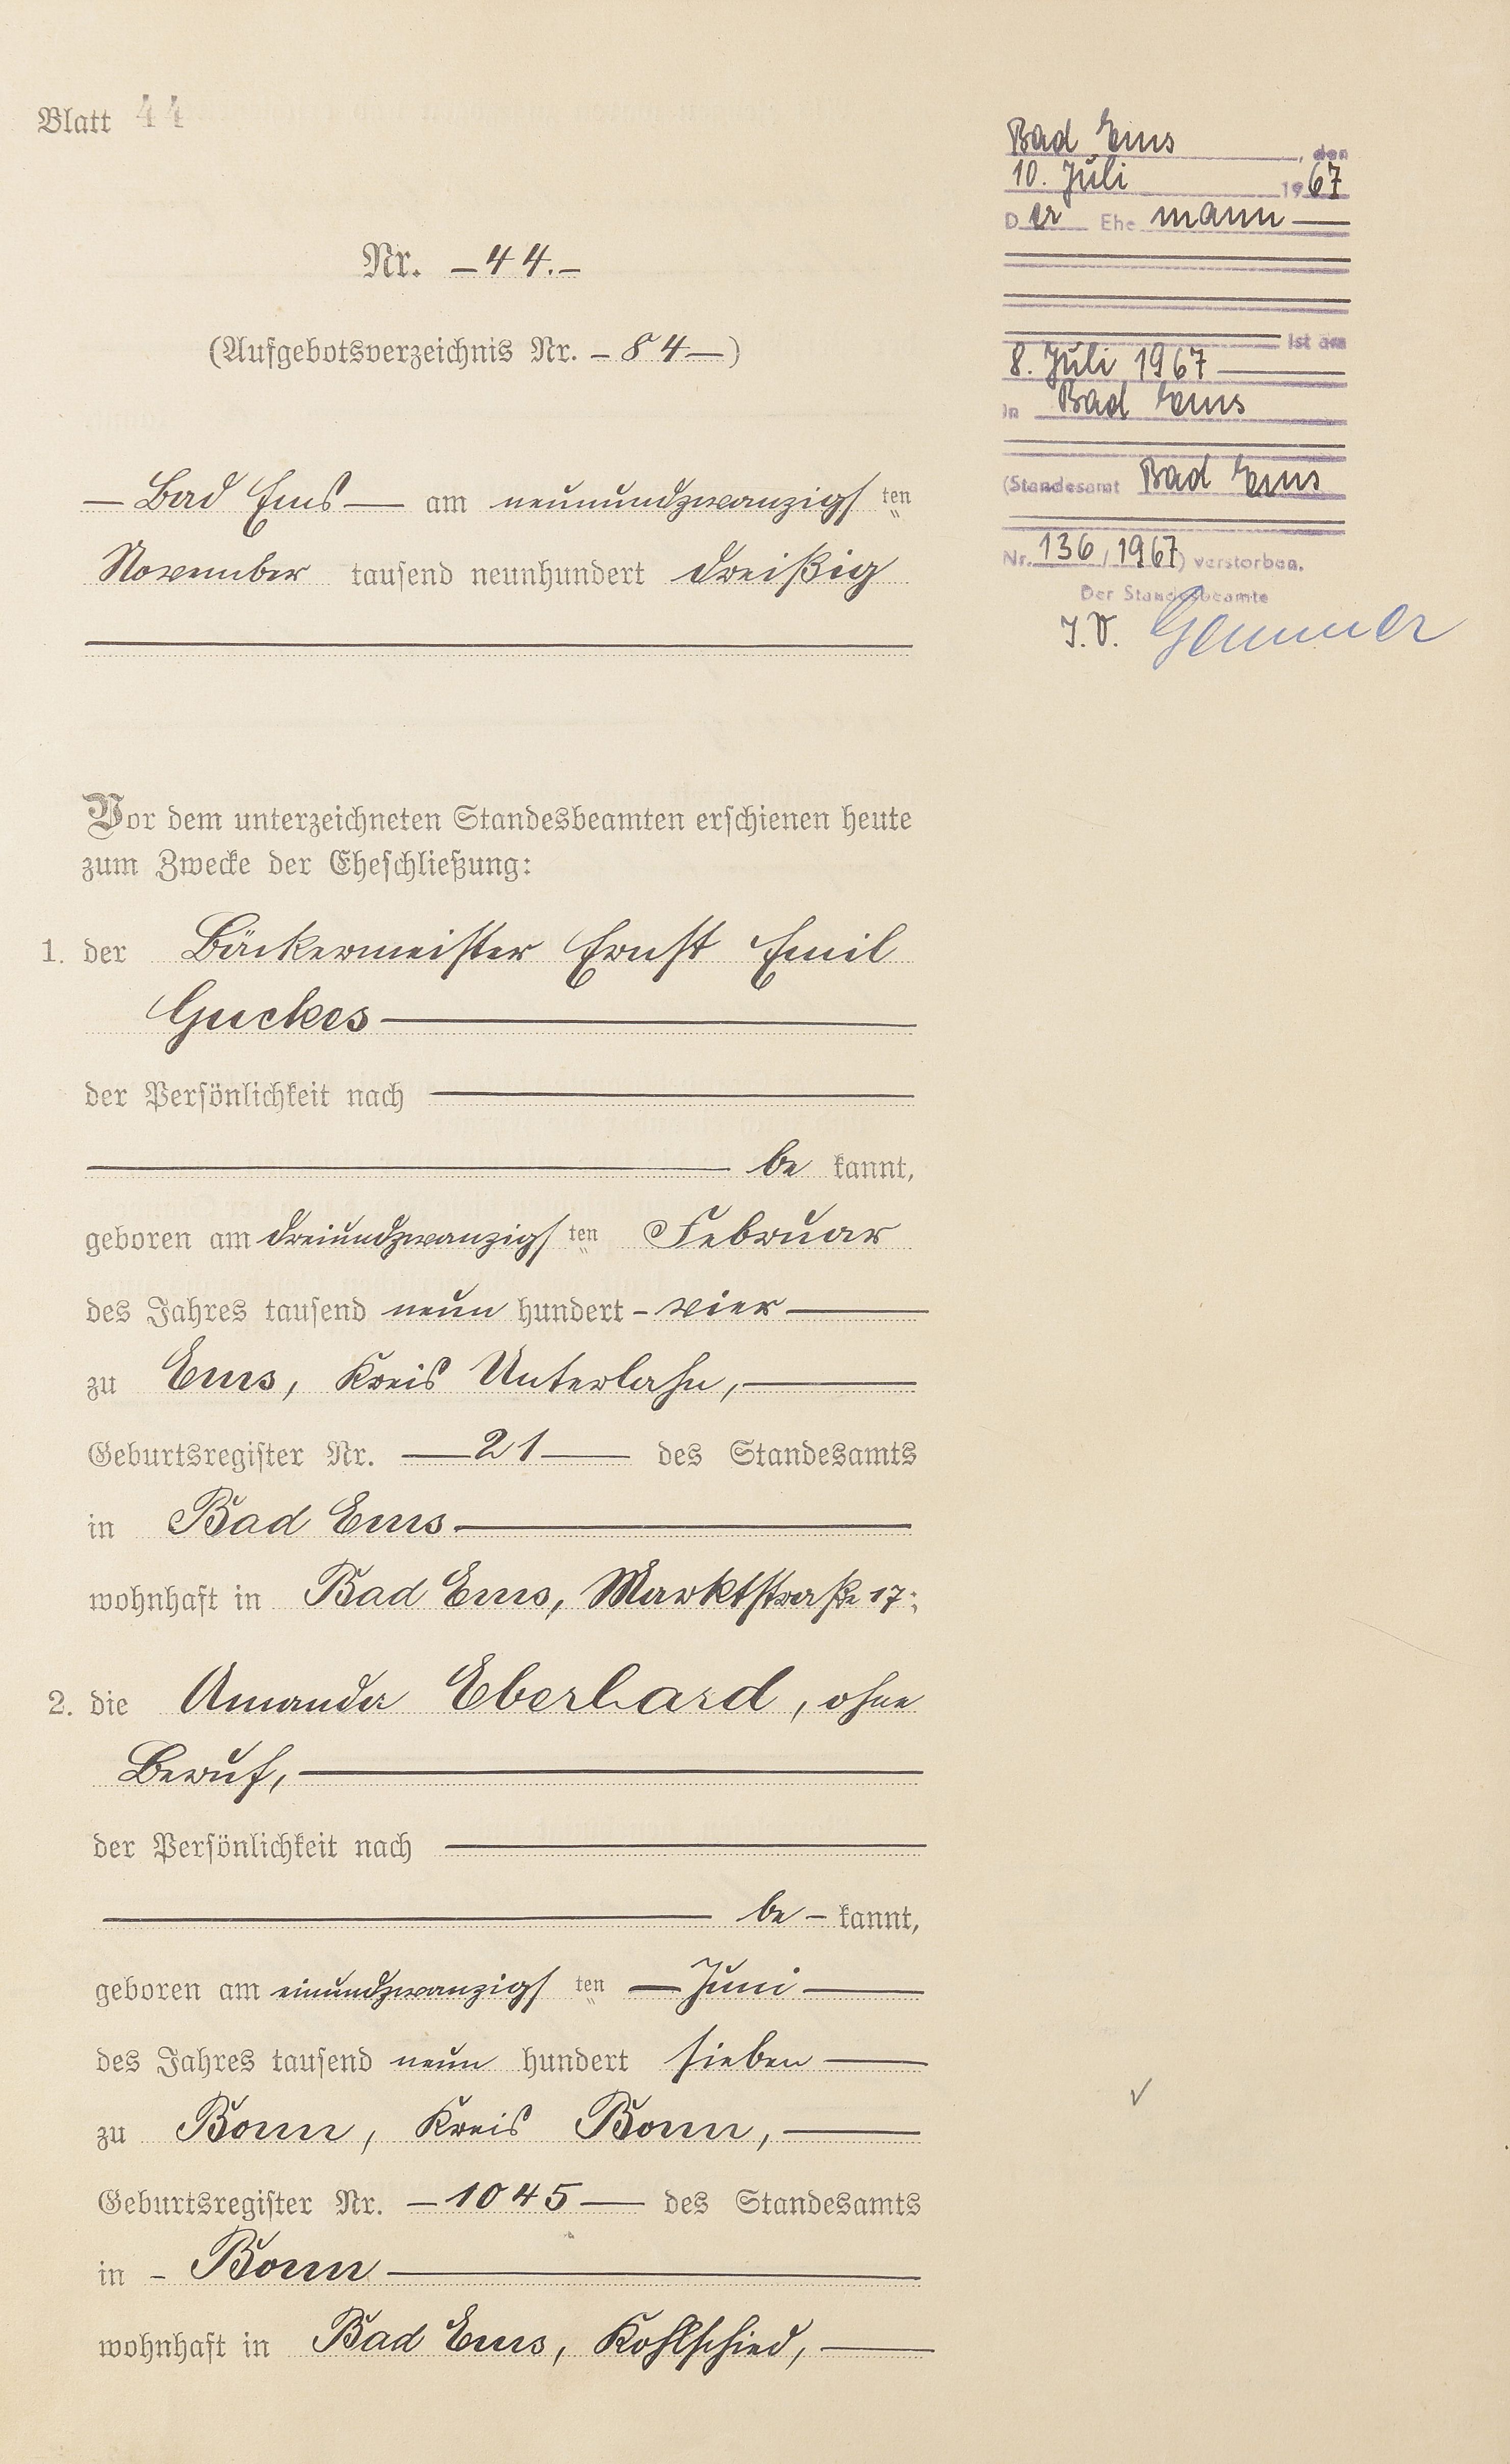 Blatt 44
Nr. – 44. –
(Aufgebotsverzeichnis Nr. – 84 –)
– Bad Ems – am neunundzwanzigsten
November tausend neunhundert dreißig
Vor dem unterzeichneten Standesbeamten erschienen heute
zum Zwecke der Eheschließung:
1. der Bäckermeister Ernst Emil
Guckes
der Persönlichkeit nach
be kannt,
geboren am dreiundzwanzigsten Februar
des Jahres tausend neun hundert – vier
zu Ems, Kreis Unterlahn,
Geburtsregister Nr. – 21 – des Standesamts
in Bad Ems
wohnhaft in Bad Ems, Marktstraße 17;
2. die Amanda Eberhard, ohne
Beruf,
der Persönlichkeit nach
be – kannt,
geboren am einundzwanzigsten – Juni –
des Jahres tausend neun hundert sieben
zu Bonn, Kreis Bonn,
Geburtsregister Nr. – 1045 – des Standesamts
in – Bonn
wohnhaft in Bad Ems, Kohlschied,
Bad Ems, den
10. Juli 1967
Der Ehe mann
ist am
8. Juli 1967
in Bad Ems
(Standesamt Bad Ems
Nr. 136/1967) verstorben.
Der Standesbeamte
I.V. Gemmer